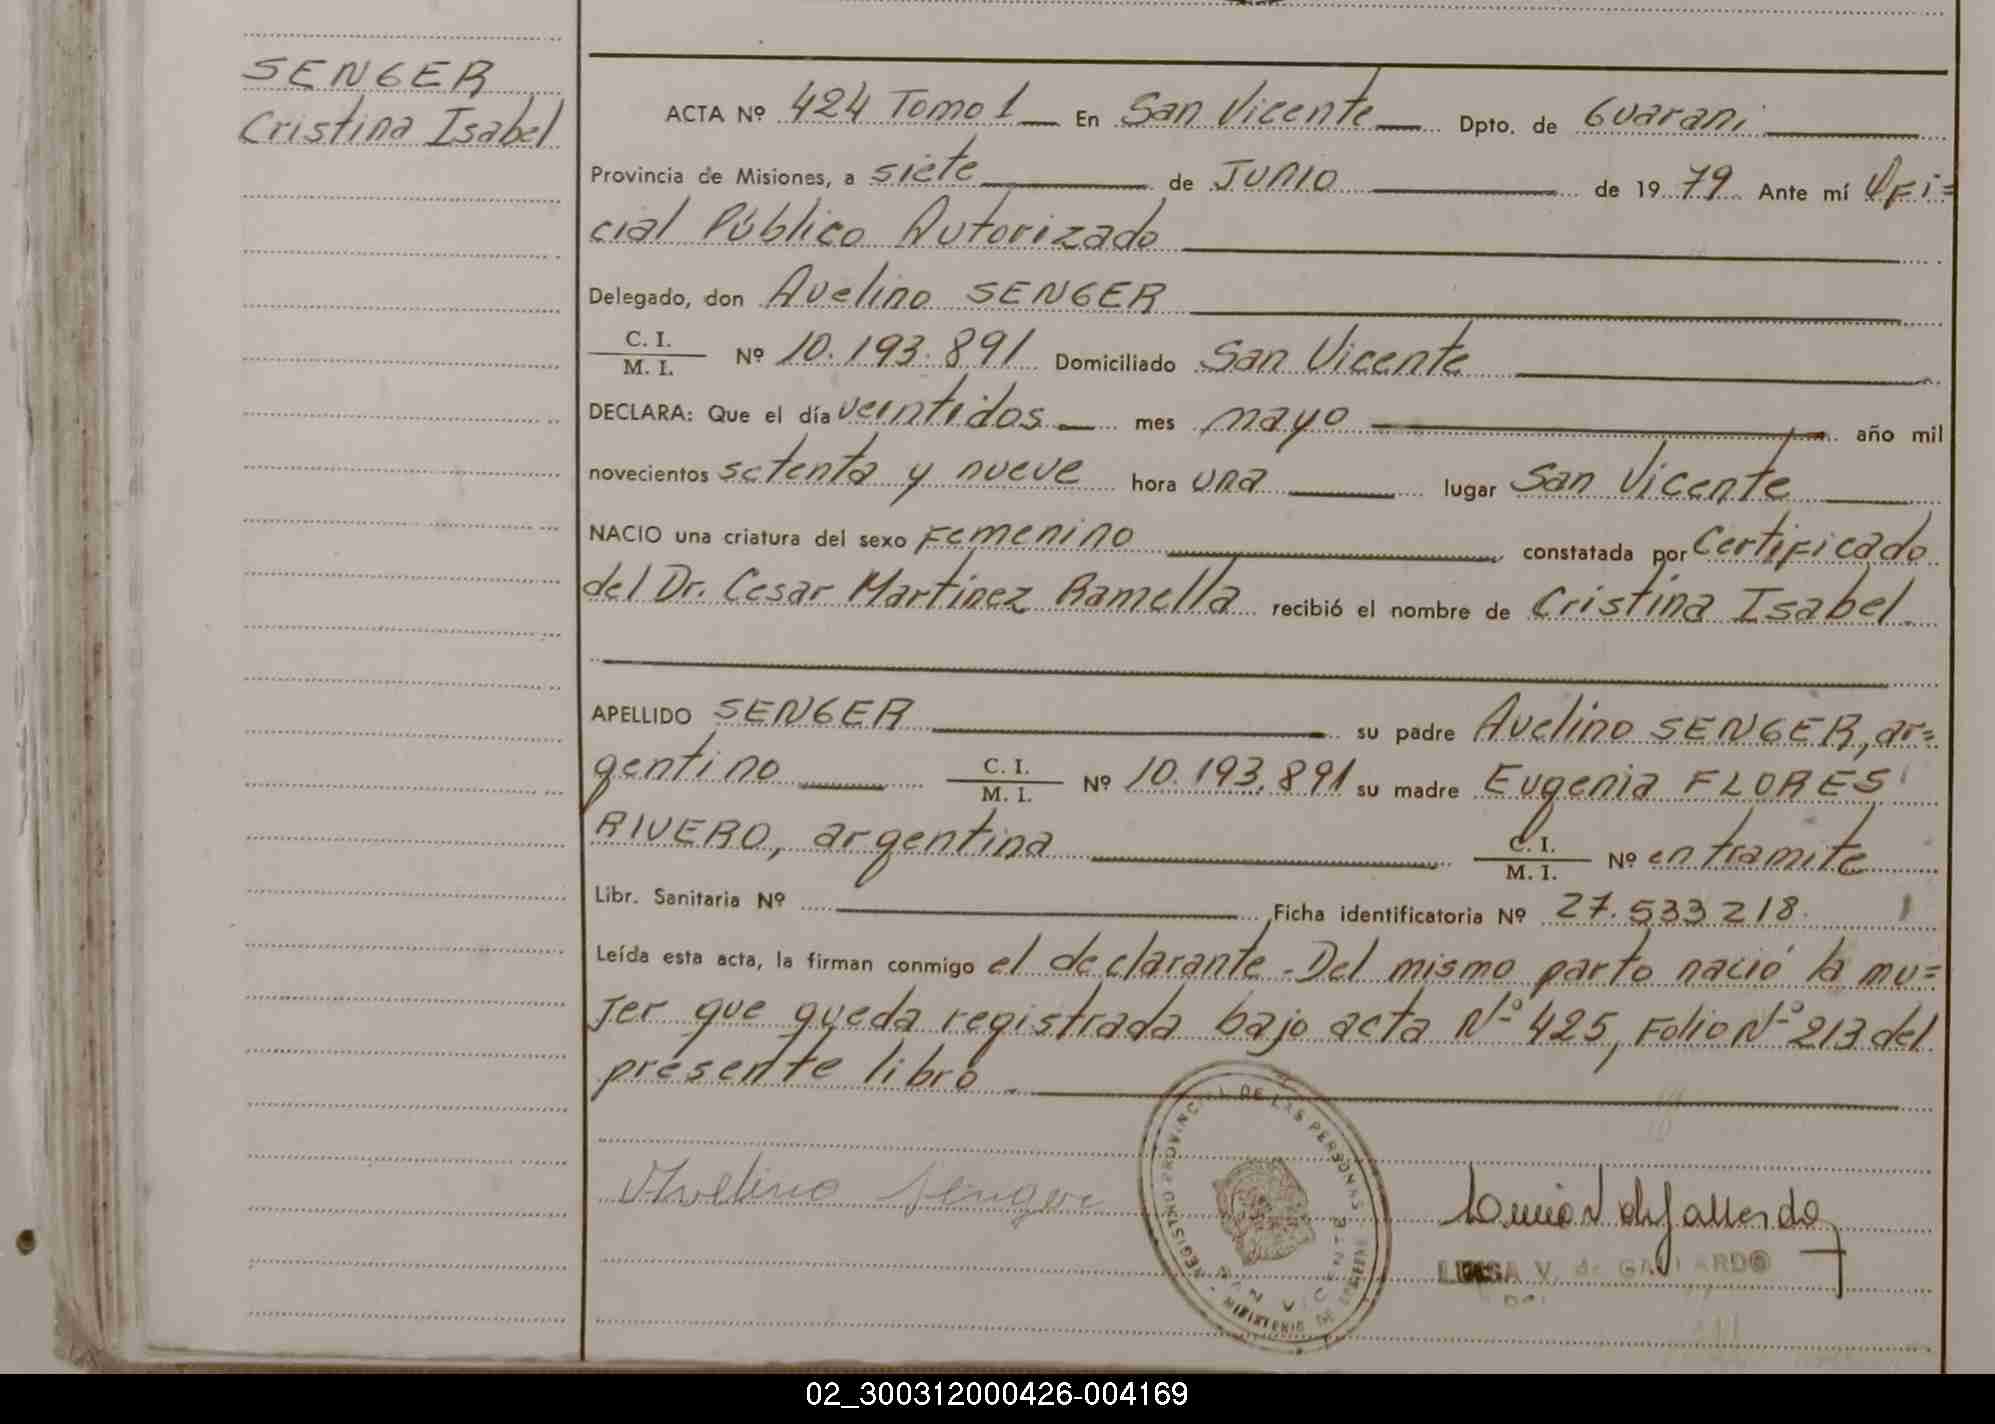 SENGER
Cristina Isabel
ACTA Nº 424 Tomo 1 En San Vicente Dpto. de Guarani
Provincia de Misiones, a siete de Junio de 1979 Ante mí Ofi=
cial Público Autorizado
Delegado, don Avelino SENGER
C. I.
M. I. Nº 10.193.891 Domiciliado San Vicente
DECLARA: Que el día veintidos mes mayo año mil
novecientos setenta y nueve hora una lugar San Vicente
NACIO una criatura del sexo Femenino constatada por Certificado
del Dr. Cesar Martinez Ramella recibió el nombre de Cristina Isabel.
APELLIDO SENGER su padre Avelino SENGER, ar=
gentino C. I.
M. I. Nº 10.193.891 su madre Eugenia FLORES
RIVERO, argentina C. I.
M. I. Nº en tramite
Libr. Sanitaria Nº Ficha identificatoria Nº 27.533.218.
Leída esta acta, la firman conmigo el declarante. Del mismo parto nació la mu=
jer que queda registrada bajo acta Nº 425, Folio Nº 213 del
presente libro.
Avelino Senger
REGISTRO PROVINCIAL DE LAS PERSONAS
SAN VICENTE
MINISTERIO DE
LUISA V. de GALLARDO
02_300312000426-004169